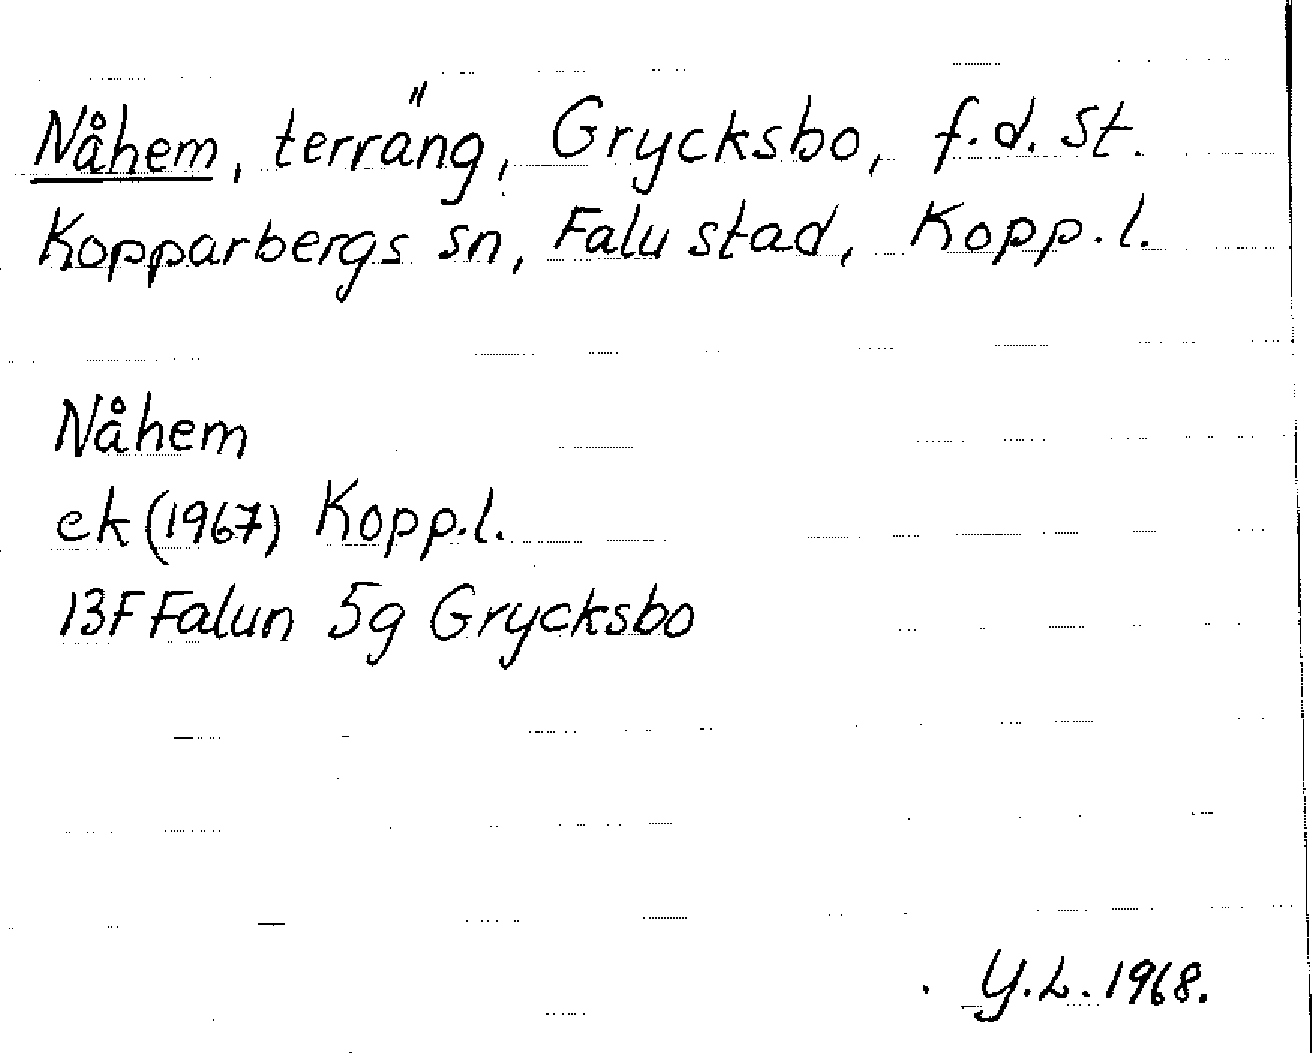 Nåhem, terräng, Grycksbo, f.d. St.
Kopparbergs sn, Falu stad, Kopp. l.
Nåhem
ek (1967) Kopp.l.
13F Falun 5g Grycksbo
Y.L. 1968.